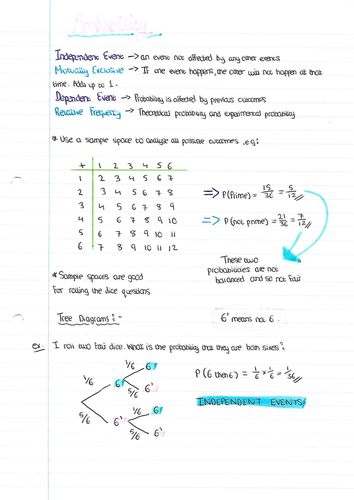 Probability
Independent Event → an event not affected by any other events
Mutually Exclusive → If one event happens, the other will not happen at that
time. Adds up to 1.
Dependent Event → Probability is affected by previous outcomes
Relative Frequency → Theoretical probability and experimental probability
* Use a sample space to analyse all possible outcomes, eg:
+ 1 2 3 4 5 6
1 2 3 4 5 6 7
2 3 4 5 6 7 8
3 4 5 6 7 8 9
4 5 6 7 8 9 10
5 6 7 8 9 10 11
6 7 8 9 10 11 12
⇒ P(Prime) = 15/36 = 5/12
⇒ P(not prime) = 21/36 = 7/12
These two
probabilities are not
balanced and so not fair
* Sample spaces are good
for rolling the dice questions
Tree Diagrams:-
6' means not 6.
ex. I roll two fair dice. What is the probability that they are both sixes?
1/6 6
1/6 6
5/6 6'
5/6 6'
1/6 6
5/6 6'
P(6 then 6) = 1/6 × 1/6 = 1/36
INDEPENDENT EVENTS